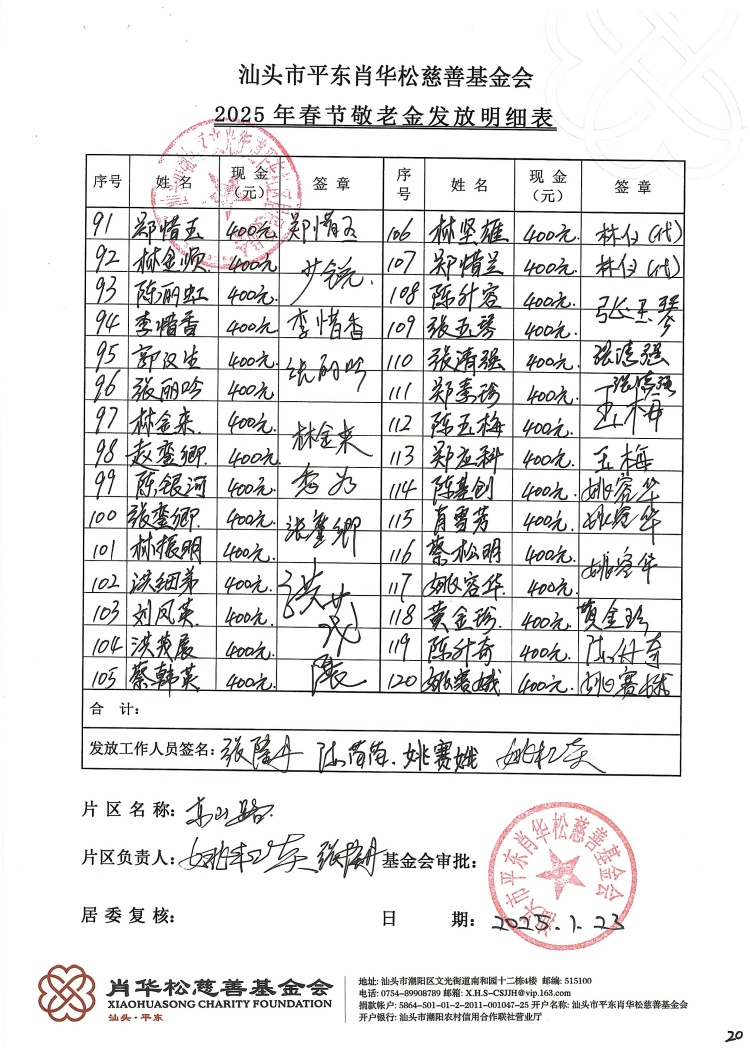 汕头市平东肖华松慈善基金会
2025年春节敬老金发放明细表
序号 姓名 现金（元） 签章 序号 姓名 现金（元） 签章
91 郑惜玉 400元. 郑惜玉 106 林坚雄 400元. 林(代)
92 林金 400元 107 郑惜兰 400元. 林(代)
93 陈丽虹 400元 108 陈升容 400元.
94 李惜香 400元 李惜香 109 张玉琴 400元. 张玉琴
95 郭汉生 400元. 张丽吟 110 张清强 400元. 张清强
96 张丽吟 400元 111 郑素珍 400元. 张清强
97 林金来. 400元. 林金来 112 陈玉梅 400元. 玉梅
98 赵銮卿. 400元. 113 郑应科 400元. 玉梅
99 陈银河 400元. 114 陈基创 400元. 姚容华
100 张銮卿. 400元. 张銮卿 115 肖雪芳 400元. 姚容华
101 林振明 400元. 116 蔡松明 400元. 姚容华
102 洪细弟 400元. 洪 117 姚容华. 400元.
103 刘凤英. 400元. 118 黄金珍. 400元. 黄金珍
104 洪 400元. 119 陈升奇 400元. 陈升奇
105 蔡韩英 400元. 120 姚赛娥 400元. 姚赛娥
合 计：
发放工作人员签名：张 陈 姚赛娥 姚
片区名称：东山路.
片区负责人：姚 张 基金会审批：
汕头市平东肖华松慈善基金会
居委复核： 日 期：2025.1.23
肖华松慈善基金会
XIAOHUASONG CHARITY FOUNDATION
汕头·平东
地址: 汕头市潮阳区文光街道南和园十二栋4楼 邮编: 515100
电话: 0754-89908789 邮箱: X.H.S-CSJJH@vip.163.com
捐款帐户: 5864-501-01-2-2011-001047-25 开户名称: 汕头市平东肖华松慈善基金会
开户银行: 汕头市潮阳农村信用合作联社营业厅
20